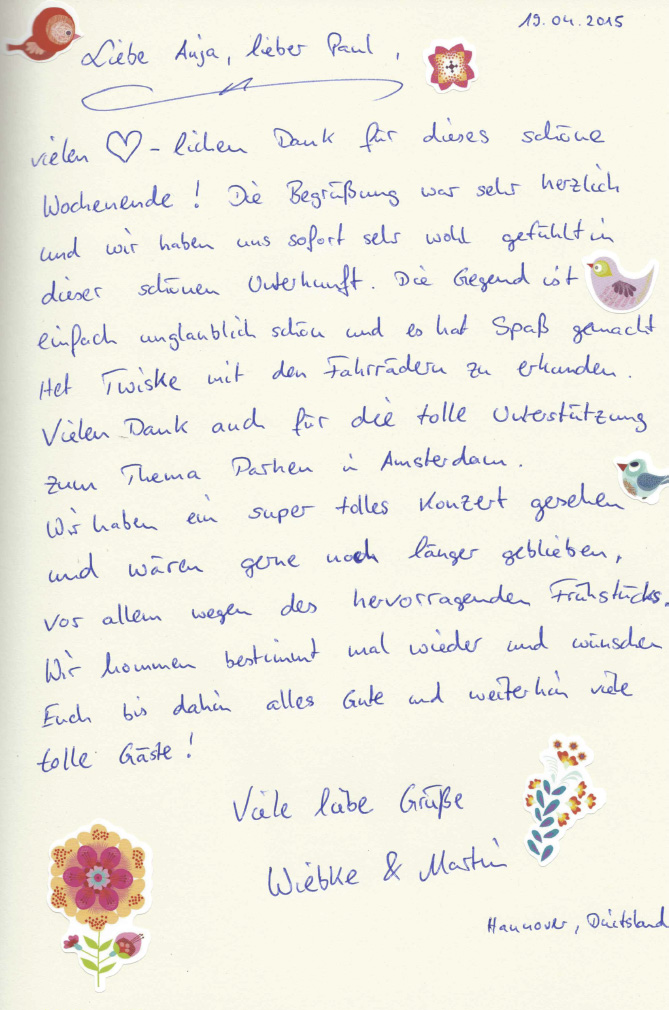 19.04.2015
Liebe Anja, lieber Paul,
vielen ♡-lichen Dank für dieses schöne
Wochenende! Die Begrüßung war sehr herzlich
und wir haben uns sofort sehr wohl gefühlt in
dieser schönen Unterkunft. Die Gegend ist
einfach unglaublich schön und es hat Spaß gemacht
Het Twiske mit den Fahrrädern zu erkunden.
Vielen Dank auch für die tolle Unterstützung
zum Thema Parken in Amsterdam.
Wir haben ein super tolles Konzert gesehen
und wären gerne noch länger geblieben,
vor allem wegen des hervorragenden Frühstücks.
Wir kommen bestimmt mal wieder und wünschen
Euch bis dahin alles Gute und weiterhin viele
tolle Gäste!
Viele liebe Grüße
Wiebke & Martin
Hannover, Duitsland